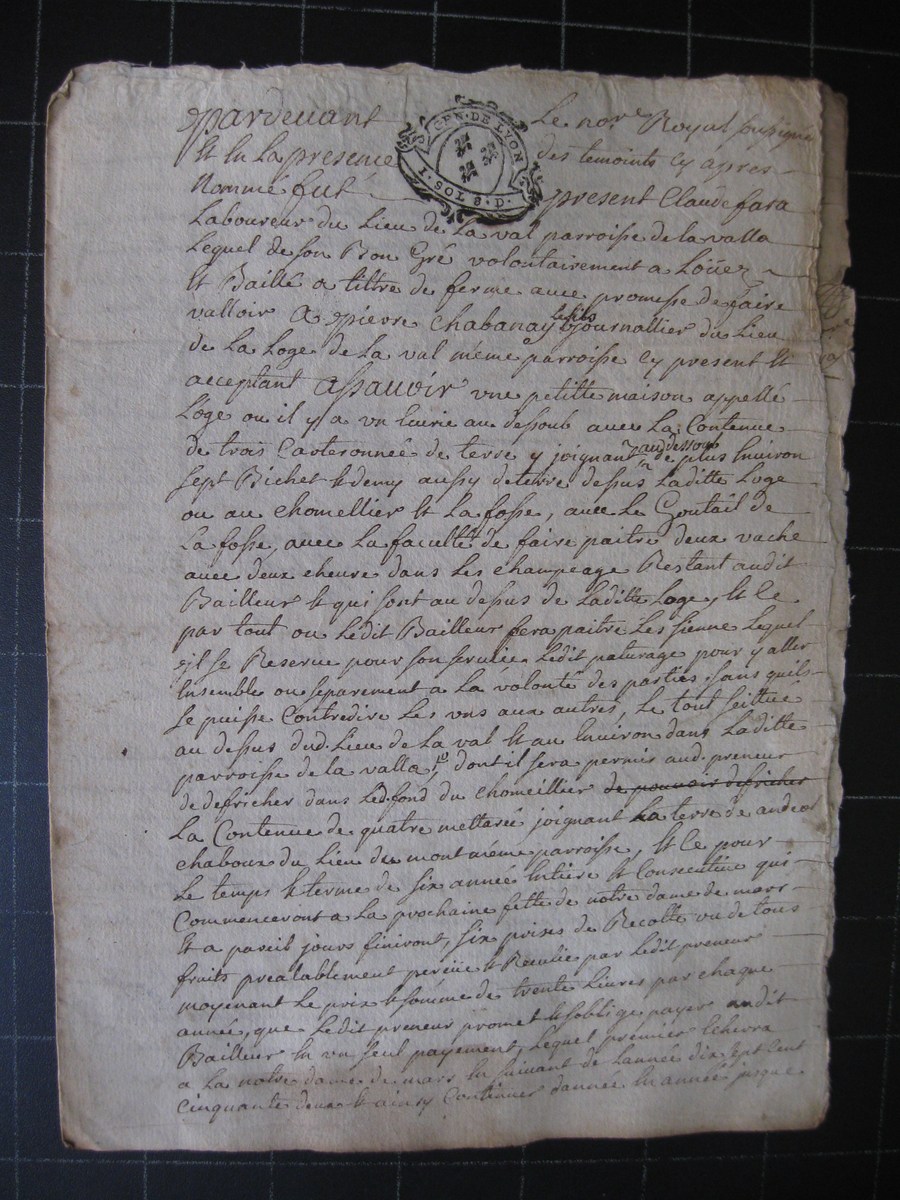 GEN · DE LYON
D · 8 · TOS · I
Pardevant Le no.re Royal soussigné
Et En La presence des temoints cy apres
Nommé fut present Claude fara
Laboureur du Lieu de La val parroisse de la valla
Lequel de son Bon Gré volontairement a Loüez
Et Baillé a tiltre de ferme avec promesse de faire
valloir A pierre Chabanay le fils journallier du Lieu
de La Loge de La val même parroisse cy present Et
acceptant Assavoir une petitte maison appellé
Loge ou il y a vn Ecurie au dessoub avec La Contenue
de trois Carteronnée de terre y joignant au dessoub de plus Environ
sept Bichet Et demy aussy de terre dessus Laditte Loge
ou au Chomellier Et La fosse, avec Le Goutail de
La fosse, avec La faculté de faire paitre deux vache
avec deux chevre dans Les Champeage Restant audit
Bailleur Et qui sont au dessus de Laditte Loge, Et Ce
par tout ou Ledit Bailleur fera paitre Les sienne Lequel
il se Reserve pour son service Ledit paturage pour y aller
Ensemble ou separement a La volonté des parties sans quils
se puisse Contredire Les vns aux autres, Le tout scittué
au dessus dud. Lieu de La val Et au Environ dans Laditte
parroisse de la valla, dont il sera permis aud. preneur
de defricher dans Led. fond du Chomeillier de pouvoir defricher
La Contenue de quatre mettareé joignant La terre de andeol
chaboux du Lieu de mont même parroisse, Et Ce pour
Le temps Et terme de six année Entiere Et Consecutive qui
Commenceront a La prochaine fette de notre dame de mars
Et a pareil jours finiront, six prises de Recolte ou de tous
fruits prealablement perçue Et Receulie par Ledit preneur
moyenant Le prix Et somme de trente Livres par chaque
année, que Ledit preneur promet Et soblige payer audit
Bailleur En vn seul payement, Lequel premier Echerra
a La notre dame de mars En suivant de Lannée dix sept Cent
Cinquante deux Et ainsy Continuer dannée En année jusque